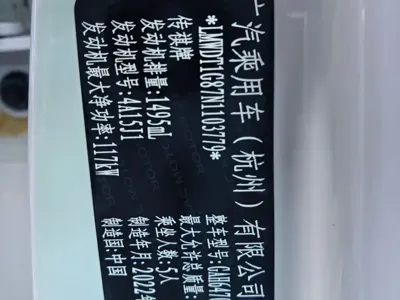 广汽乘用车（杭州）有限公司
*LMWDT1G87N1103779*
传祺牌 整车型号:GAH647
发动机排量:1495mL 最大允许总质量:
发动机型号:4A15J1 乘坐人数:5人
发动机最大净功率:117kW 制造年月:2022年
制造国:中国